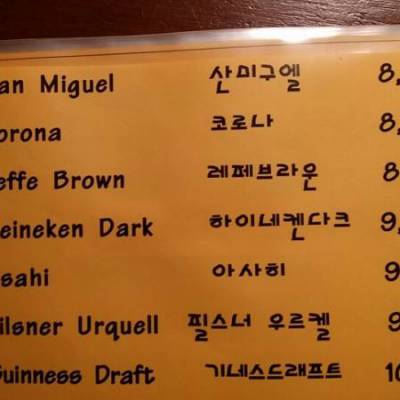 an Miguel 산미구엘 8,
orona 코로나 8,
effe Brown 레페브라운 8
eineken Dark 하이네켄다크 9,
sahi 아사히 9
ilsner Urquell 필스너 우르켈 9
Guinness Draft 기네스드래프트 10